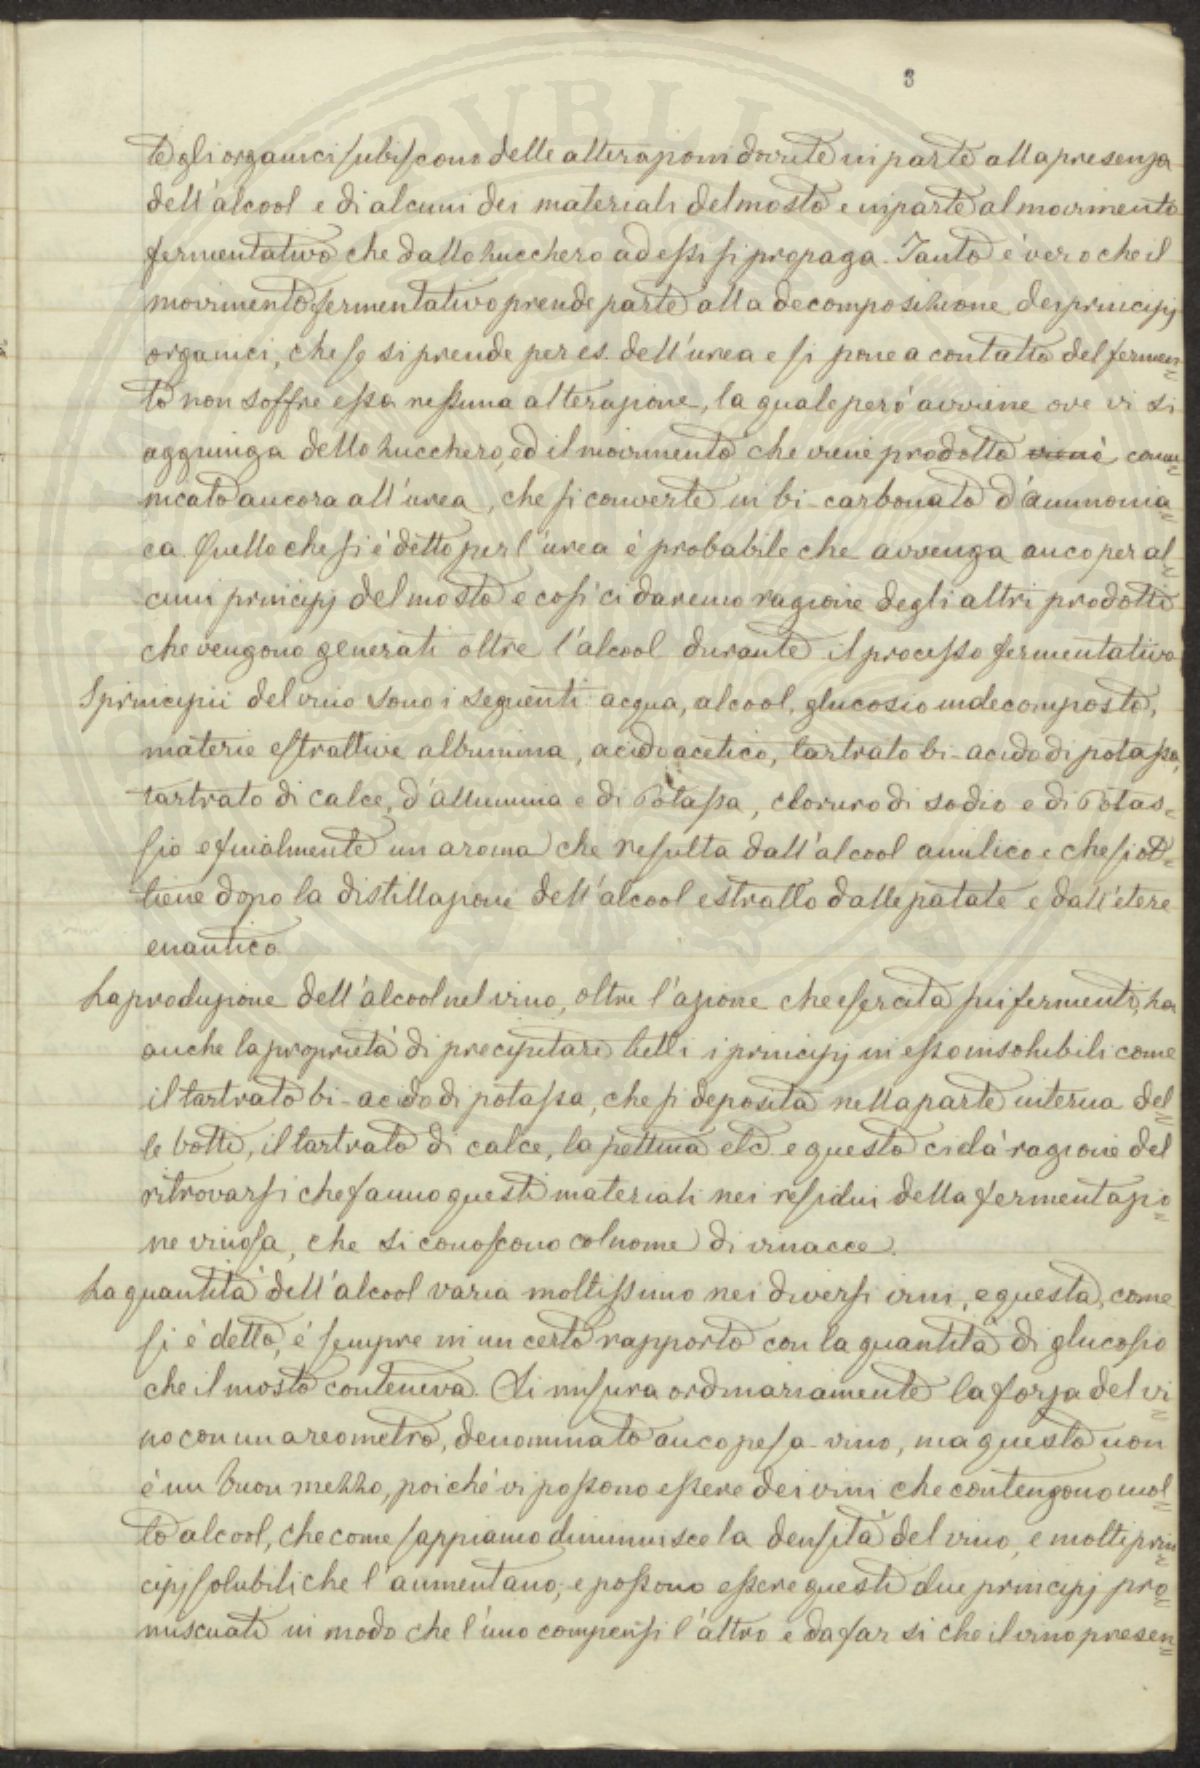 3
te gli organici subiscono delle alterazioni dovute in parte alla presenza
dell'alcool e di alcuni dei materiali del mosto e in parte al movimento
fermentativo che dallo zucchero ad essi si propaga. Tanto è vero che il
movimento fermentativo prende parte alla decomposizione dei principj
organici, che se si prende per es. dell'urea e si pone a contatto del fermen=
to non soffre essa nessuna alterazione, la quale però avviene ove vi si
aggiunga dello zucchero, ed il movimento che viene prodotto viene comu=
nicato ancora all'urea, che si converte in bi-carbonato d'ammonia=
ca. Quello che si è detto per l'urea è probabile che avvenga anco per al=
cuni principj del mosto e così ci daremo ragione degli altri prodotti
che vengono generati oltre l'alcool durante il processo fermentativo
I principii del vino sono i seguenti: acqua, alcool, glucosio indecomposto,
materie estrattive albumina, acido acetico, tartrato bi-acido di potassa,
tartrato di calce, d'allumina e di Potassa, cloruro di sodio e di Potas=
sio e finalmente un aroma che resulta dall'alcool amilico e che si ot=
tiene dopo la distillazione dell'alcool estratto dalle patate e dall'etere
enantico
La produzione dell'alcool nel vino, oltre l'azione che esercita sui fermenti, ha
anche la proprietà di precipitare tutti i principj in esso insolubili come
il tartrato bi-acido di potassa, che si deposita nella parte interna del=
le botti, il tartrato di calce, la pettina etc. e questo ci dà ragione del
ritrovarsi che fanno questi materiali nei residui della fermentazio=
ne vinosa, che si conoscono col nome di vinacce.
La quantità dell'alcool varia moltissimo nei diversi vini, e questa, come
si è detto, è sempre in un certo rapporto con la quantità di glucosio
che il mosto conteneva. Si misura ordinariamente la forza del vi=
no con un areometro, denominato anco pesa-vino, ma questo non
è un buon mezzo, poiché vi possono essere dei vini che contengono mol=
to alcool, che come sappiamo diminuisce la densità del vino, e molti prin=
cipj solubili che l'aumentano, e possono essere questi due principj pro=
miscuati in modo che l'uno compensi l'altro e da far sì che il vino presen=